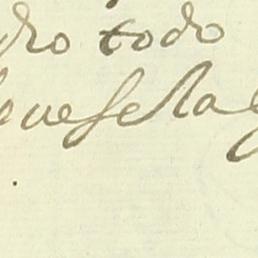 dro todo
que se la